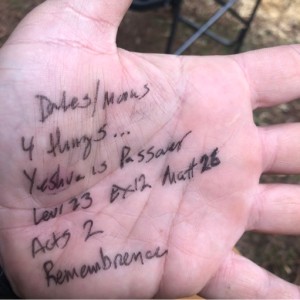 Dates/Moons
4 things...
Yeshua is Passover
Levi 23 Ex12 Matt 26
Acts 2
Remembrence